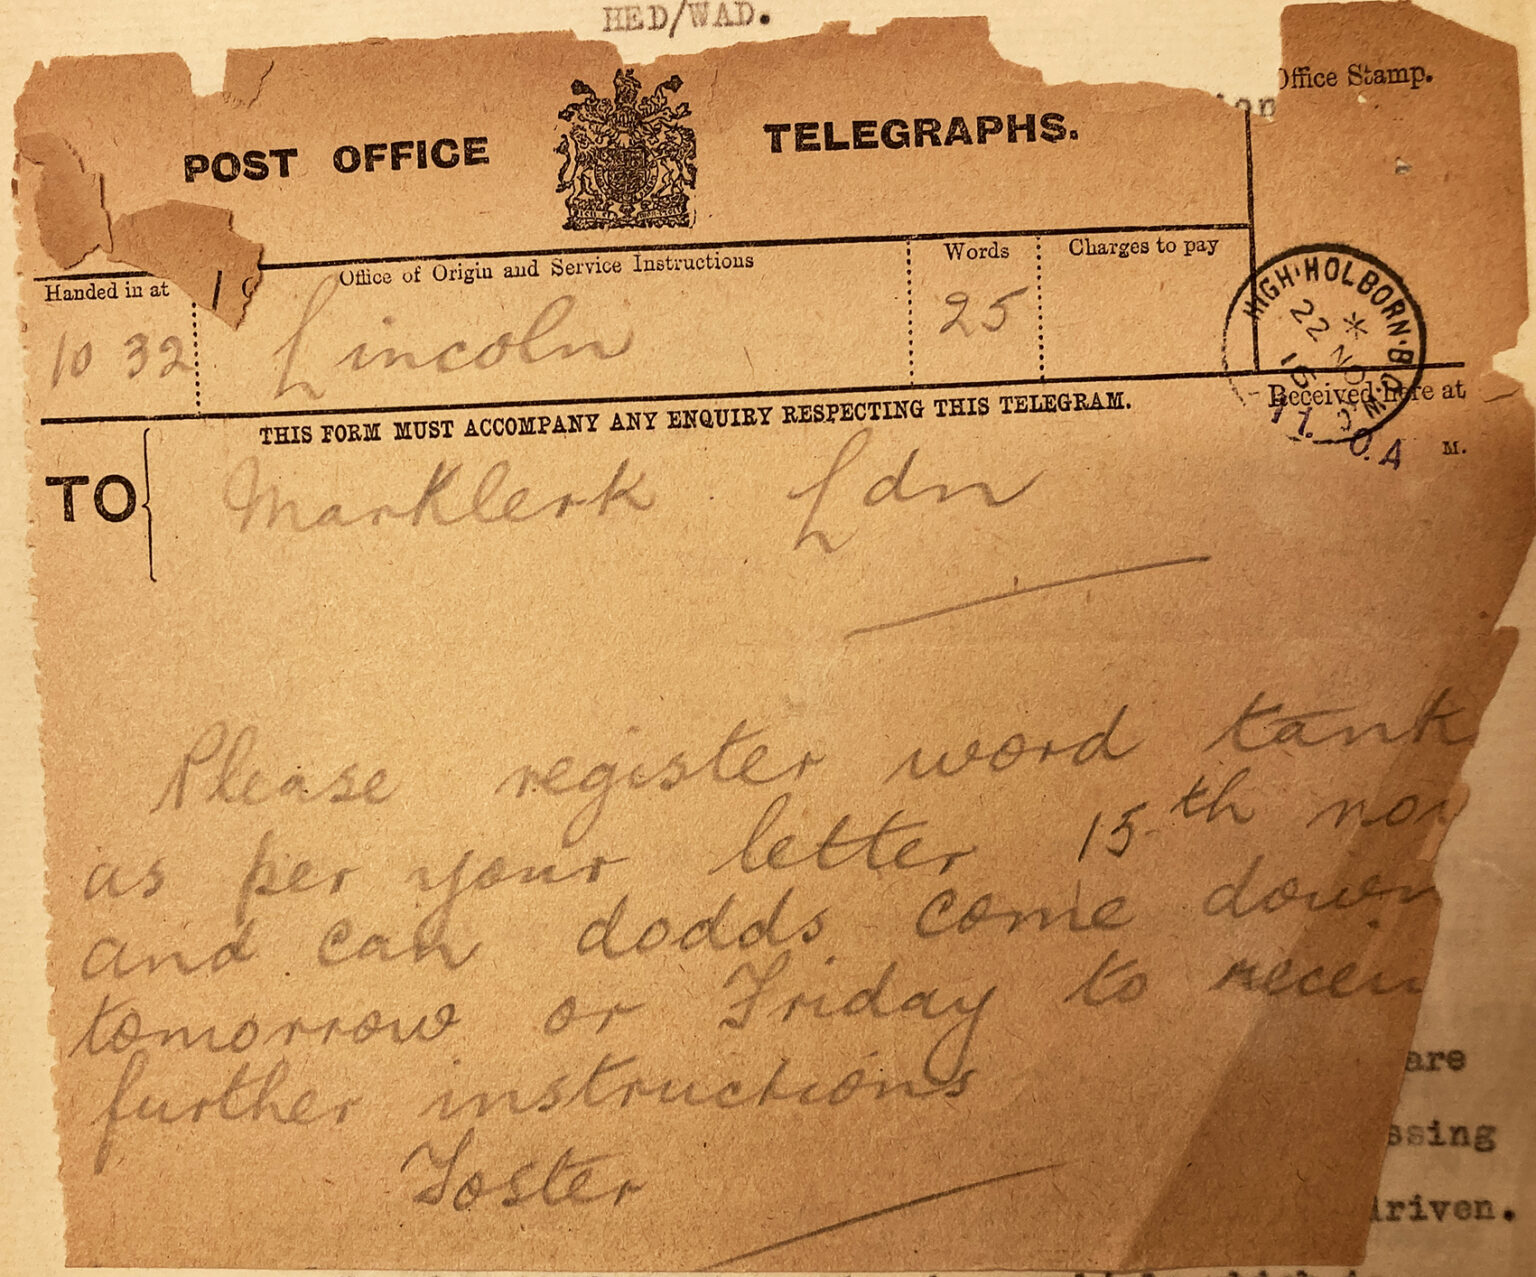 HED/WAD.
Office Stamp.
POST OFFICE TELEGRAPHS.
Handed in at
Office of Origin and Service Instructions
Words
Charges to pay
10 32
Lincoln
25
HIGH·HOLBORN·B.O.
22 NO 16
Received here at
THIS FORM MUST ACCOMPANY ANY ENQUIRY RESPECTING THIS TELEGRAM.
M.
TO Marklerk Ldn
Please register word tank
as per your letter 15th nov
and can dodds come down
tomorrow or Friday to receiv
further instructions
Foster
are
ssing
driven.